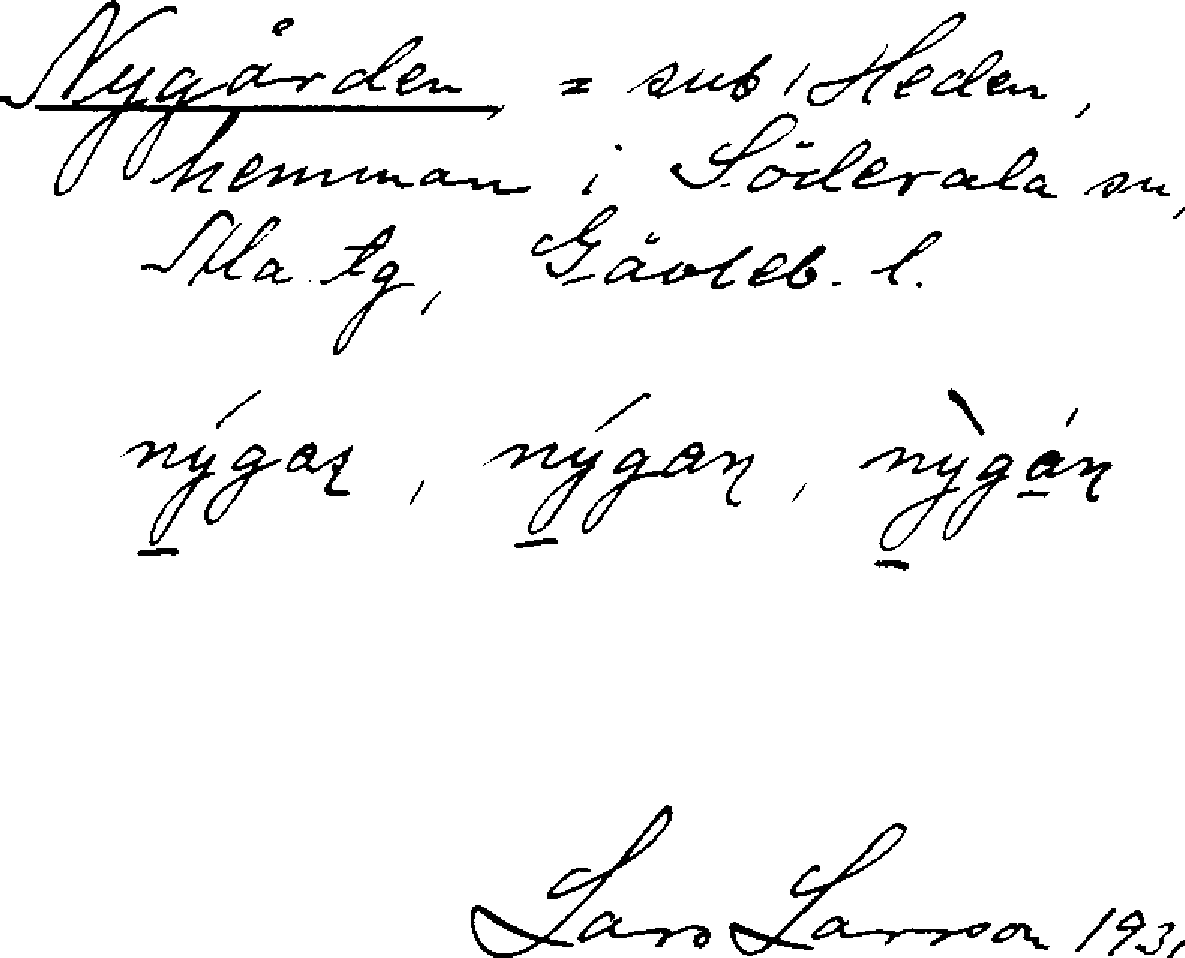 Nygården, = sub 1 Heden,
hemman i Söderala sn,
Ala tg, Gävleb. l.
nýgaṣ, nýgaṇ, nỳgáṇ
Lars Larsson 1931